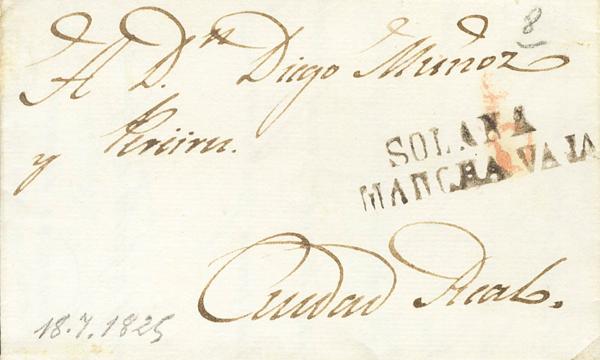 8
A Dn Diego Muñoz
y Pereiro.
SOLANA
MANCHA VAJA
Ciudad Real.
18.7.1825